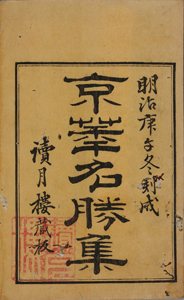 明治庚午冬刻成
京華名勝集
讀月樓藏板